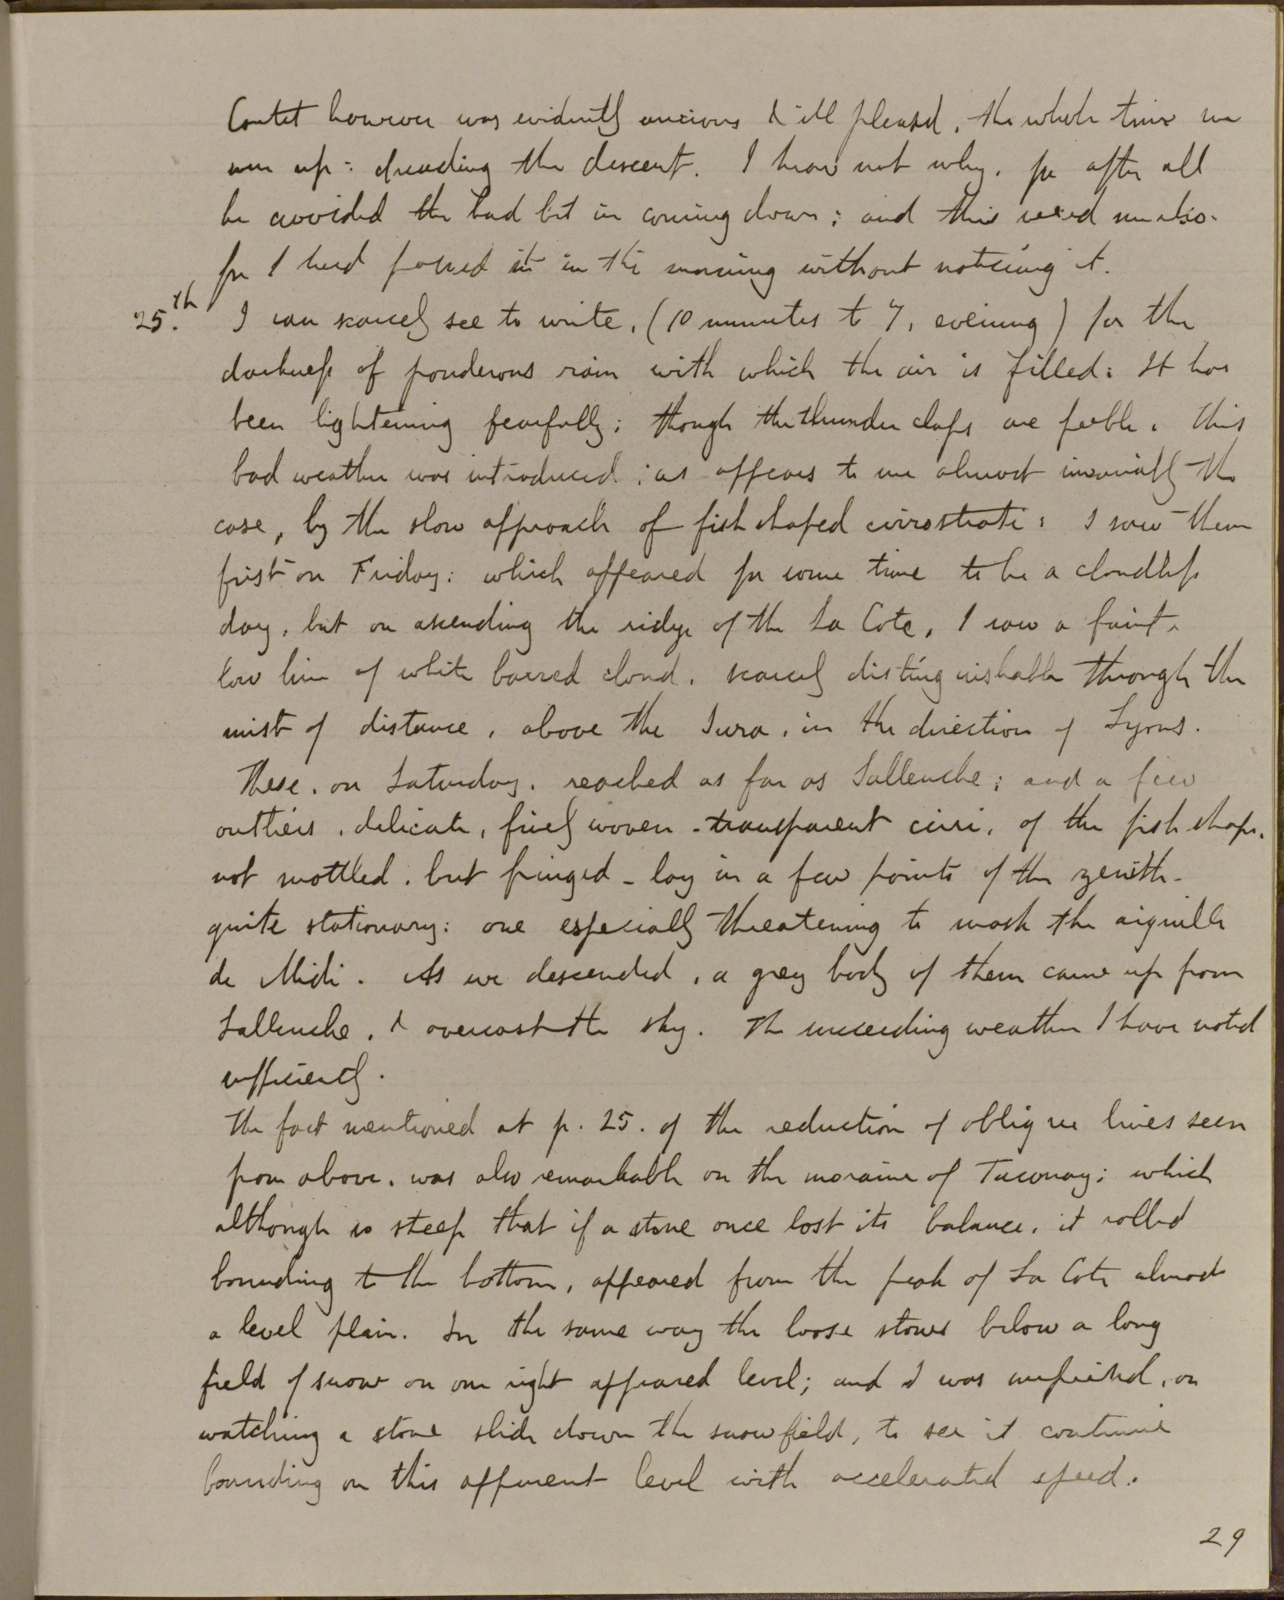 Coutet however was evidently anxious & ill pleased, the whole time we
were up: dreading the descent. I know not why, for after all
he avoided the bad bit in coming down; and this vexed me also.
for I had passed it in the morning without noticing it.
25.th I can scarcely see to write, (10 minutes to 7, evening) for the
darkness of ponderous rain with which the air is filled: It has
been lightening fearfully; though the thunder claps are feeble. This
bad weather was introduced; as appears to me almost invariably the
case, by the slow approach of fish shaped cirrostrati: I saw them
first on Friday: which appeared for some time to be a cloudless
day, but on ascending the ridge of the La Cote, I saw a faint
low line of white barred cloud, scarcely distinguishable through the
mist of distance, above the Jura, in the direction of Lyons.
These, on Saturday, reached as far as Sallenche; and a few
outliers, delicate, finely woven - transparent cirri, of the fish shape,
not mottled, but fringed - lay in a few points of the zenith -
quite stationary: one especially threatening to mask the aiguille
de Midi. As we descended, a grey body of them came up from
Sallenche, & overcast the sky. The succeeding weather I have noted
sufficiently.
The fact mentioned at p. 25. of the reduction of oblique lines seen
from above, was also remarkable on the moraine of Taconay; which
although so steep that if a stone once lost its balance, it rolled
bounding to the bottom, appeared from the peak of La Cote almost
a level plain. In the same way the loose stones below a long
field of snow on our right appeared level; and I was surprised, on
watching a stone slide down the snowfield, to see it continue
bounding on this apparent level with accelerated speed.
29